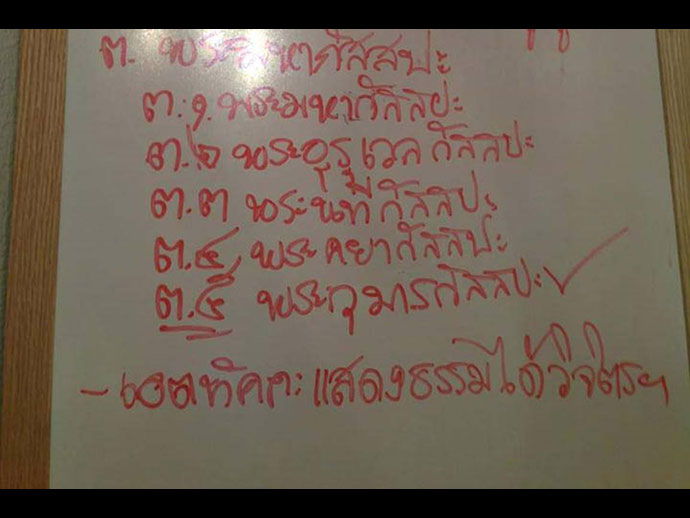 ๓. พระมหากัสสปะ
๓.๑. พระมหากัสสปะ
๓.๒ พระอุรุเวลกัสสปะ
๓.๓ พระนทีกัสสปะ
๓.๔ พระคยากัสสปะ
๓.๕ พระกุมารกัสสปะ ✓
- เอตทัคคะแสดงธรรมได้วิจิตรฯ